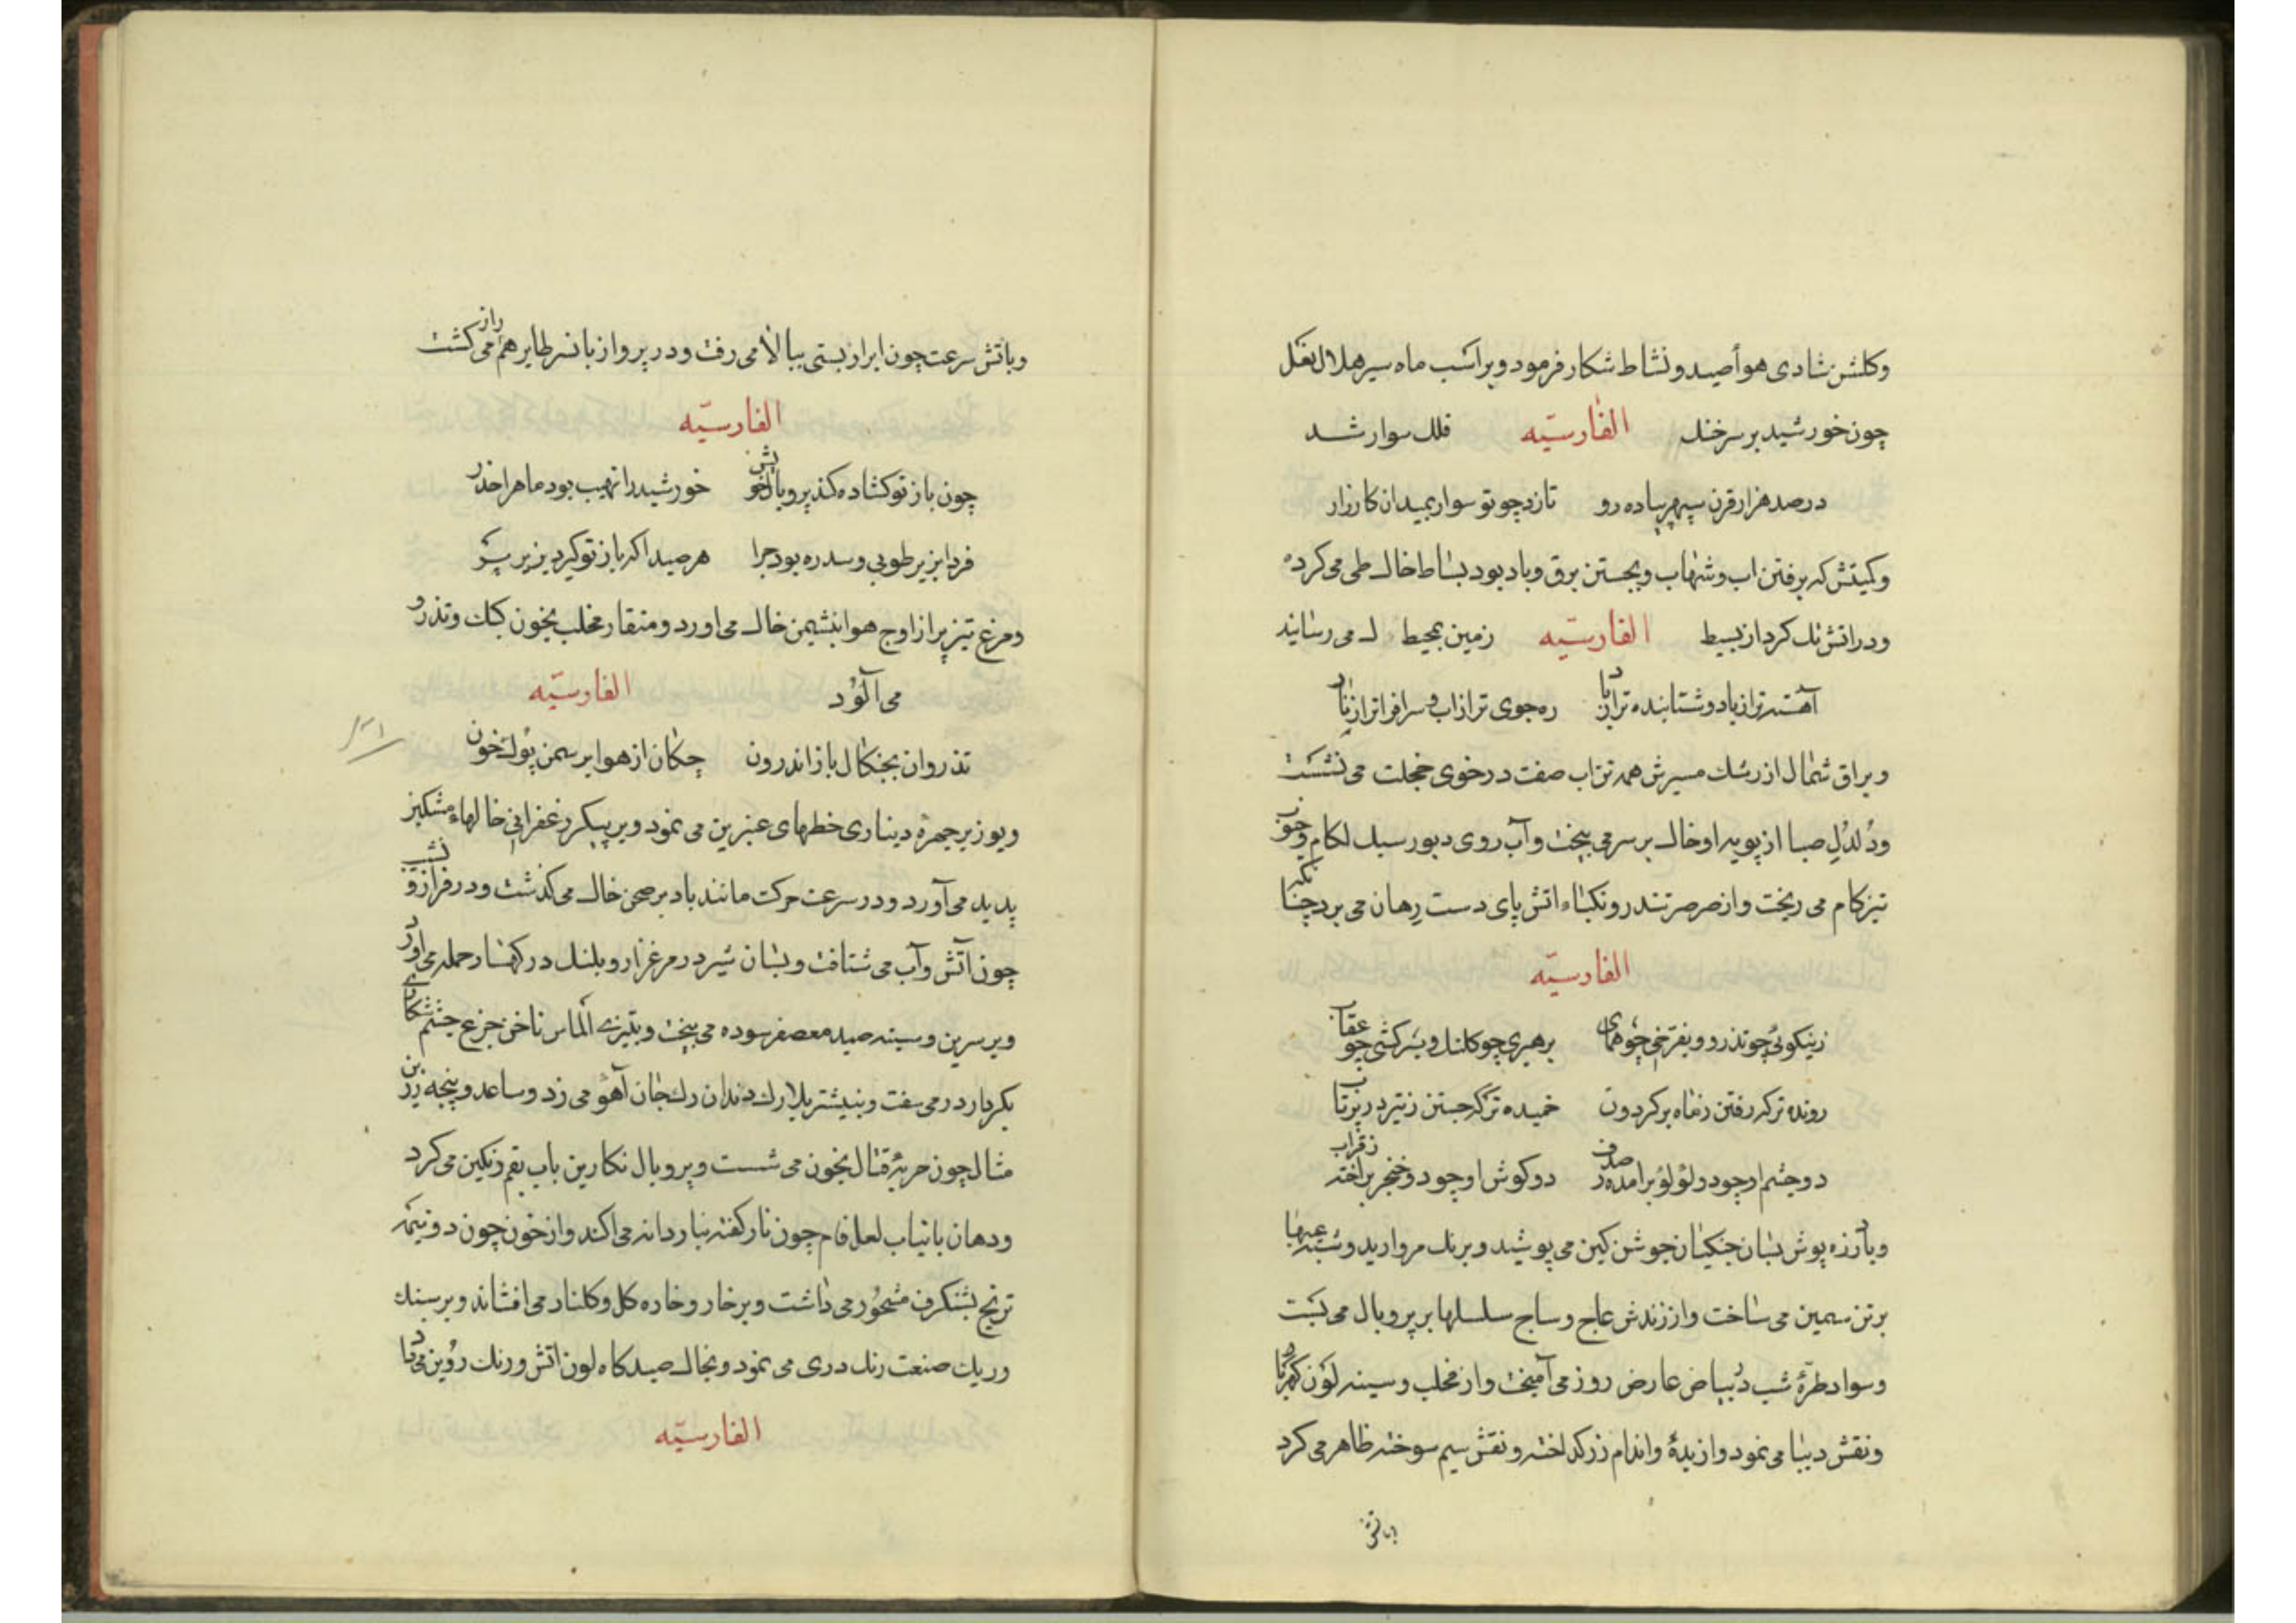 وکلشن شادی هوأ صید و نشاط شکار فرمود و بر اسب ماه سیر هلال نعل
چون خورشید بر سر خنک الفارسیّه فلک سوار شد
در صد هزار قرن سپهر پیاده رو تازد چو تو سوار بمیدان کارزار
و کمیتش که برفتن اب و شهاب و بجستن برق و باد بود بساط خاک طی می کرد
و در اتش تک کرد از بسیط الفارسیّه زمین بمحیط می رسانید
آهسته تر از باد و شتابنده تر از باد ره جوی تر از اب و سرافراتر از نار
و براق شمال از رشک مسیرش همه تن اب صفت در خوی خجلت می نشست
و دُلدُلِ صبا از پویه او خاک بر سر می بیخت و آب روی دبور سبک لکام و جنوب
تیزکام می ریخت و از صرصر تندرو نکباء اتش پای دست رهان می برد چنانکه
الفارسیّه
ز نیکویی چو تذرو و بفرّخی چو همای برهبری چو کلنک و بسرکشی چو عقاب
رونده تر که رفتن ز ماه بر کردون خمیده تر که جستن ز تیر در پرتاب
دو چشم او چو دو لؤلؤ برآمده ز صدف دو کوش او چو دو خنجر براخته ز قراب
و باز زره پوش بسان جنکیان جوشن کین می پوشید و برنک مروارید و شبه عیبها
بر تن سمین می ساخت و از زندش عاج و ساج سلسلها بر پر و بال می بست
و سواد طرّهٔ شب دُ بیاض عارض روز می آمیخت و از مخلب و سینه لون کهربا
و نقش دیبا می نمود و از دیدهٔ و اندام زر کداخته و نقش سیم سوخته ظاهر می کرد
و باتش
و باتش سرعت چون ابر از پستی ببالا می رفت و در پرواز با نسر طایر هم راز می کشت
الفارسیّه
چون باز تو کشاده کند پر و بال خویش خورشید را نهیب بود ماه را حذر
فردا بزیر طوبی و سدره بود چرا هر صید را که باز تو کیرد بزیر پر
و مرغ تیز پر از اوج هوا بنشیمن خاک می اورد و منقار و مخلب بخون کبک و تذرو
می آلود الفارسیّه
تذروان بچنکال باز اندرون چکان از هوا بر سمن پولک خون
و یوز بر چهرهٔ دیناری خطهای عنبرین می نمود و بر پیکر زعفرانی خالهاء مشکین
پدید می آورد و در سرعت حرکت مانند باد بر صحن خاک می کذشت و در فراز و نشیب
چون آتش و آب می شتافت و بسان شیر در مرغزار و پلنک در کهسار حمله می اورد
و بر سرین و سینه صید معصفر سوده می بیخت و بتیزی الماس ناخن جزع چشم شکاری
بکردار در می سفت و بنیشتر پلارک دندان رک جان آهو می زد و ساعد و پنجه زرین
مثال چون حربهٔ قتال بخون می شست و پر و بال نکارین باب بقم رنکین می کرد
و دهان بانیاب لعل فام چون نار کفته بناردانه می اکند و از خون چون دو نیمه
ترنج بشنکرف مشحور می داشت و بر خار و خاره کل و کلنار می افشاند و بر سنک
و ریک صنعت رنک دری می نمود و بخاک صیدکاه لون اتش و رنک روین می داد
الفارسیّه